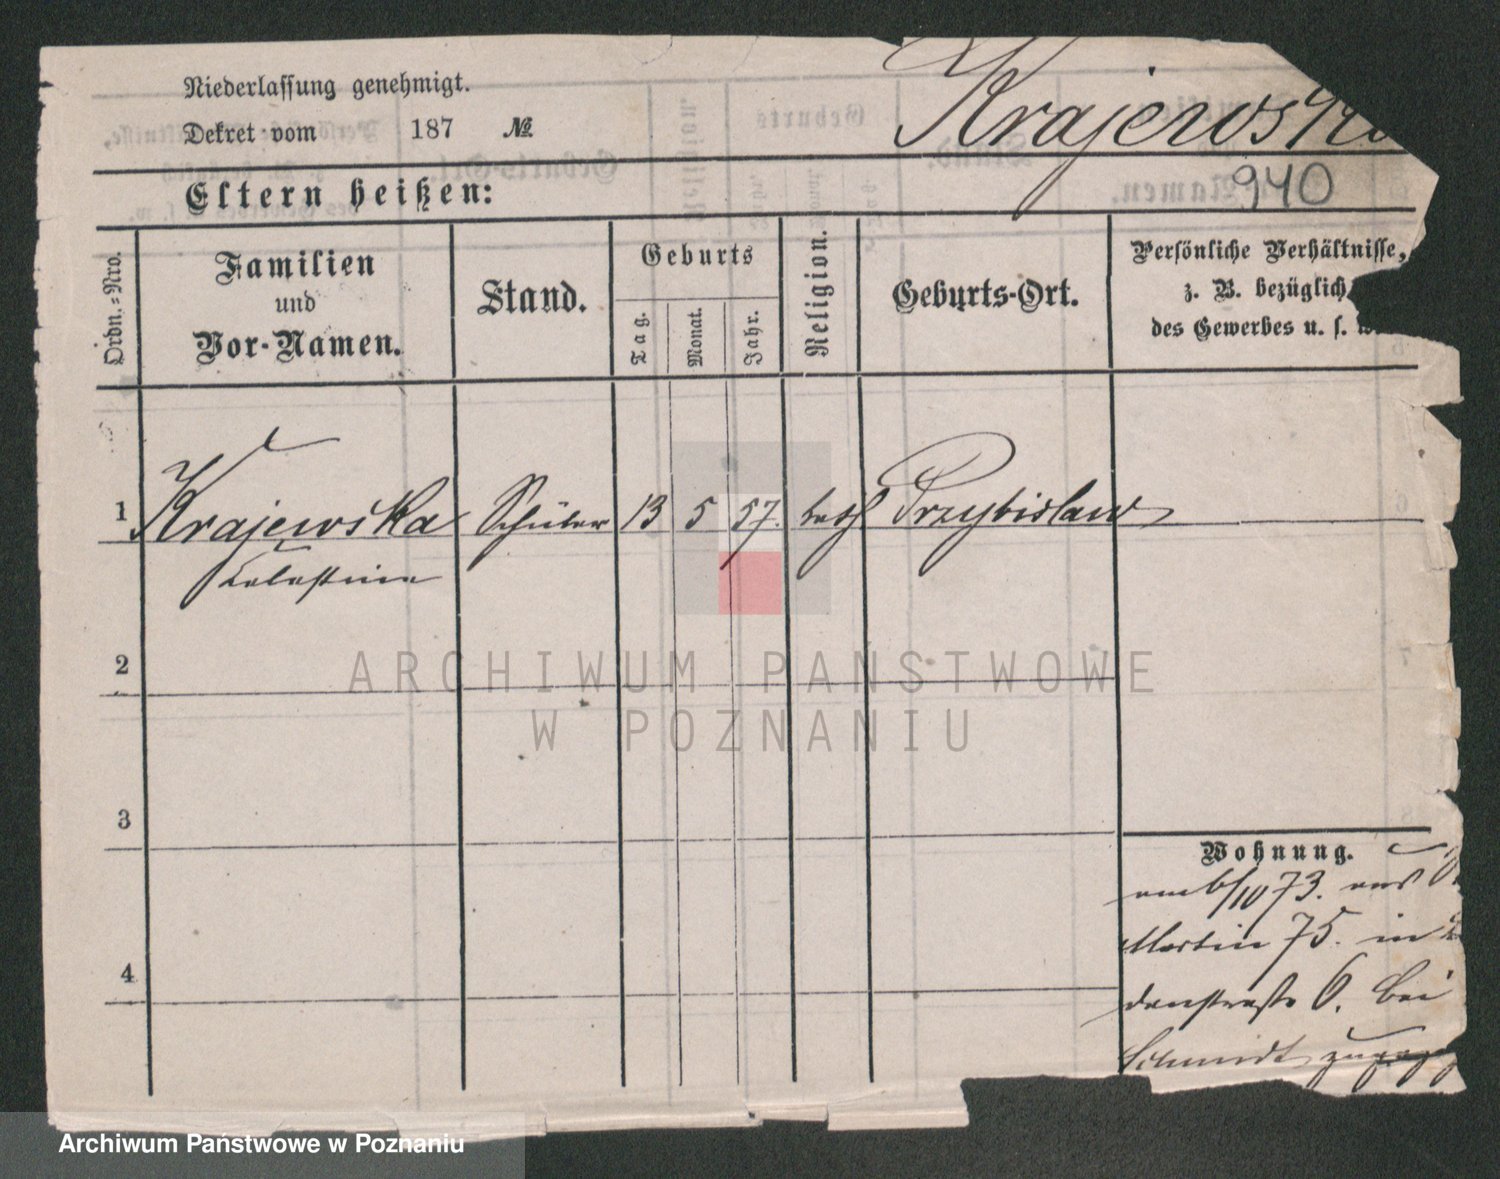 Niederlassung genehmigt.
Dekret vom 187 №
Krajewska
940
Eltern heißen:
Ordn.=Nro.
Familien
und
Vor-Namen.
Stand.
Geburts
Tag.
Monat.
Jahr.
Religion.
Geburts-Ort.
Persönliche Verhältnisse,
z. B. bezüglich
des Gewerbes u. s. w.
1 Krajewska Schüler 13 5 57. kath Przybislaw
Celestine
2
3
4
Wohnung.
am 6/10 73. aus
Martin 75. in
6. bei
Schmidt
ARCHIWUM PAŃSTWOWE
W POZNANIU
Archiwum Państwowe w Poznaniu